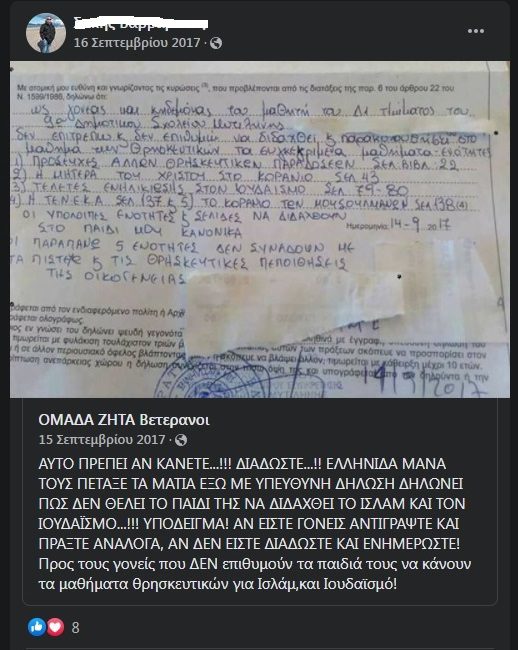 16 Σεπτεμβρίου 2017 ·
Με ατομική μου ευθύνη και γνωρίζοντας τις κυρώσεις (3), που προβλέπονται από τις διατάξεις της παρ. 6 του άρθρου 22 του
Ν. 1599/1986, δηλώνω ότι:
ως γονέας και κηδεμόνας του μαθητή του Δ1 τμήματος του
9ου Δημοτικού Σχολείου Μυτιλήνης
δεν επιτρέπω κ δεν επιθυμώ να διδαχθεί κ παρακολουθήσει στο
μάθημα των Θρησκευτικών τα συγκεκριμένα μαθήματα: ΕΝΟΤΗΤΕΣ
1) ΠΡΟΣΕΥΧΕΣ ΑΛΛΩΝ ΘΡΗΣΚΕΥΤΙΚΩΝ ΠΑΡΑΔΟΣΕΩΝ ΣΕΛ ΒΙΒΛ. 22
2) Η ΜΗΤΕΡΑ ΤΟΥ ΧΡΙΣΤΟΥ ΣΤΟ ΚΟΡΑΝΙΟ ΣΕΛ 43
3) ΤΕΛΕΤΕΣ ΕΝΗΛΙΚΙΩΣΗΣ ΣΤΟΝ ΙΟΥΔΑΙΣΜΟ ΣΕΛ 79-80
4) Η Τ.Ε.Ν.Ε.Κ.Α. ΣΕΛ 137 κ 5) ΤΟ ΚΟΡΑΝΙΟ ΤΩΝ ΜΟΥΣΟΥΛΜΑΝΩΝ ΣΕΛ 138 (4)
ΟΙ ΥΠΟΛΟΙΠΕΣ ΕΝΟΤΗΤΕΣ & ΣΕΛΙΔΕΣ ΝΑ ΔΙΔΑΧΘΟΥΝ
ΣΤΟ ΠΑΙΔΙ ΜΟΥ ΚΑΝΟΝΙΚΑ
Ημερομηνία: 14-9-2017
ΟΙ ΠΑΡΑΠΑΝΩ 5 ΕΝΟΤΗΤΕΣ ΔΕΝ ΣΥΝΑΔΟΥΝ ΜΕ
ΤΑ ΠΙΣΤΕΥΩ & ΤΙΣ ΘΡΗΣΚΕΥΤΙΚΕΣ ΠΕΠΟΙΘΗΣΕΙΣ
ΤΗΣ ΟΙΚΟΓΕΝΕΙΑΣ
ράφεται από τον ενδιαφερόμενο πολίτη ή Αρχή
ράφεται ολογράφως.
ος εν γνώσει του δηλώνει ψευδή γεγονότα
τιμωρείται με φυλάκιση τουλάχιστον τριών
ή σε άλλον περιουσιακό όφελος βλάπτοντας
14/9/2017
ΟΜΑΔΑ ΖΗΤΑ Βετερανοι
15 Σεπτεμβρίου 2017 ·
ΑΥΤΟ ΠΡΕΠΕΙ ΑΝ ΚΑΝΕΤΕ...!!! ΔΙΑΔΩΣΤΕ...!! ΕΛΛΗΝΙΔΑ ΜΑΝΑ
ΤΟΥΣ ΠΕΤΑΞΕ ΤΑ ΜΑΤΙΑ ΕΞΩ ΜΕ ΥΠΕΥΘΥΝΗ ΔΗΛΩΣΗ ΔΗΛΩΝΕΙ
ΠΩΣ ΔΕΝ ΘΕΛΕΙ ΤΟ ΠΑΙΔΙ ΤΗΣ ΝΑ ΔΙΔΑΧΘΕΙ ΤΟ ΙΣΛΑΜ ΚΑΙ ΤΟΝ
ΙΟΥΔΑΪΣΜΟ...!!! ΥΠΟΔΕΙΓΜΑ! ΑΝ ΕΙΣΤΕ ΓΟΝΕΙΣ ΑΝΤΙΓΡΑΨΤΕ ΚΑΙ
ΠΡΑΞΤΕ ΑΝΑΛΟΓΑ, ΑΝ ΔΕΝ ΕΙΣΤΕ ΔΙΑΔΩΣΤΕ ΚΑΙ ΕΝΗΜΕΡΩΣΤΕ!
Προς τους γονείς που ΔΕΝ επιθυμούν τα παιδιά τους να κάνουν
τα μαθήματα θρησκευτικών για Ισλάμ,και Ιουδαϊσμό!
8